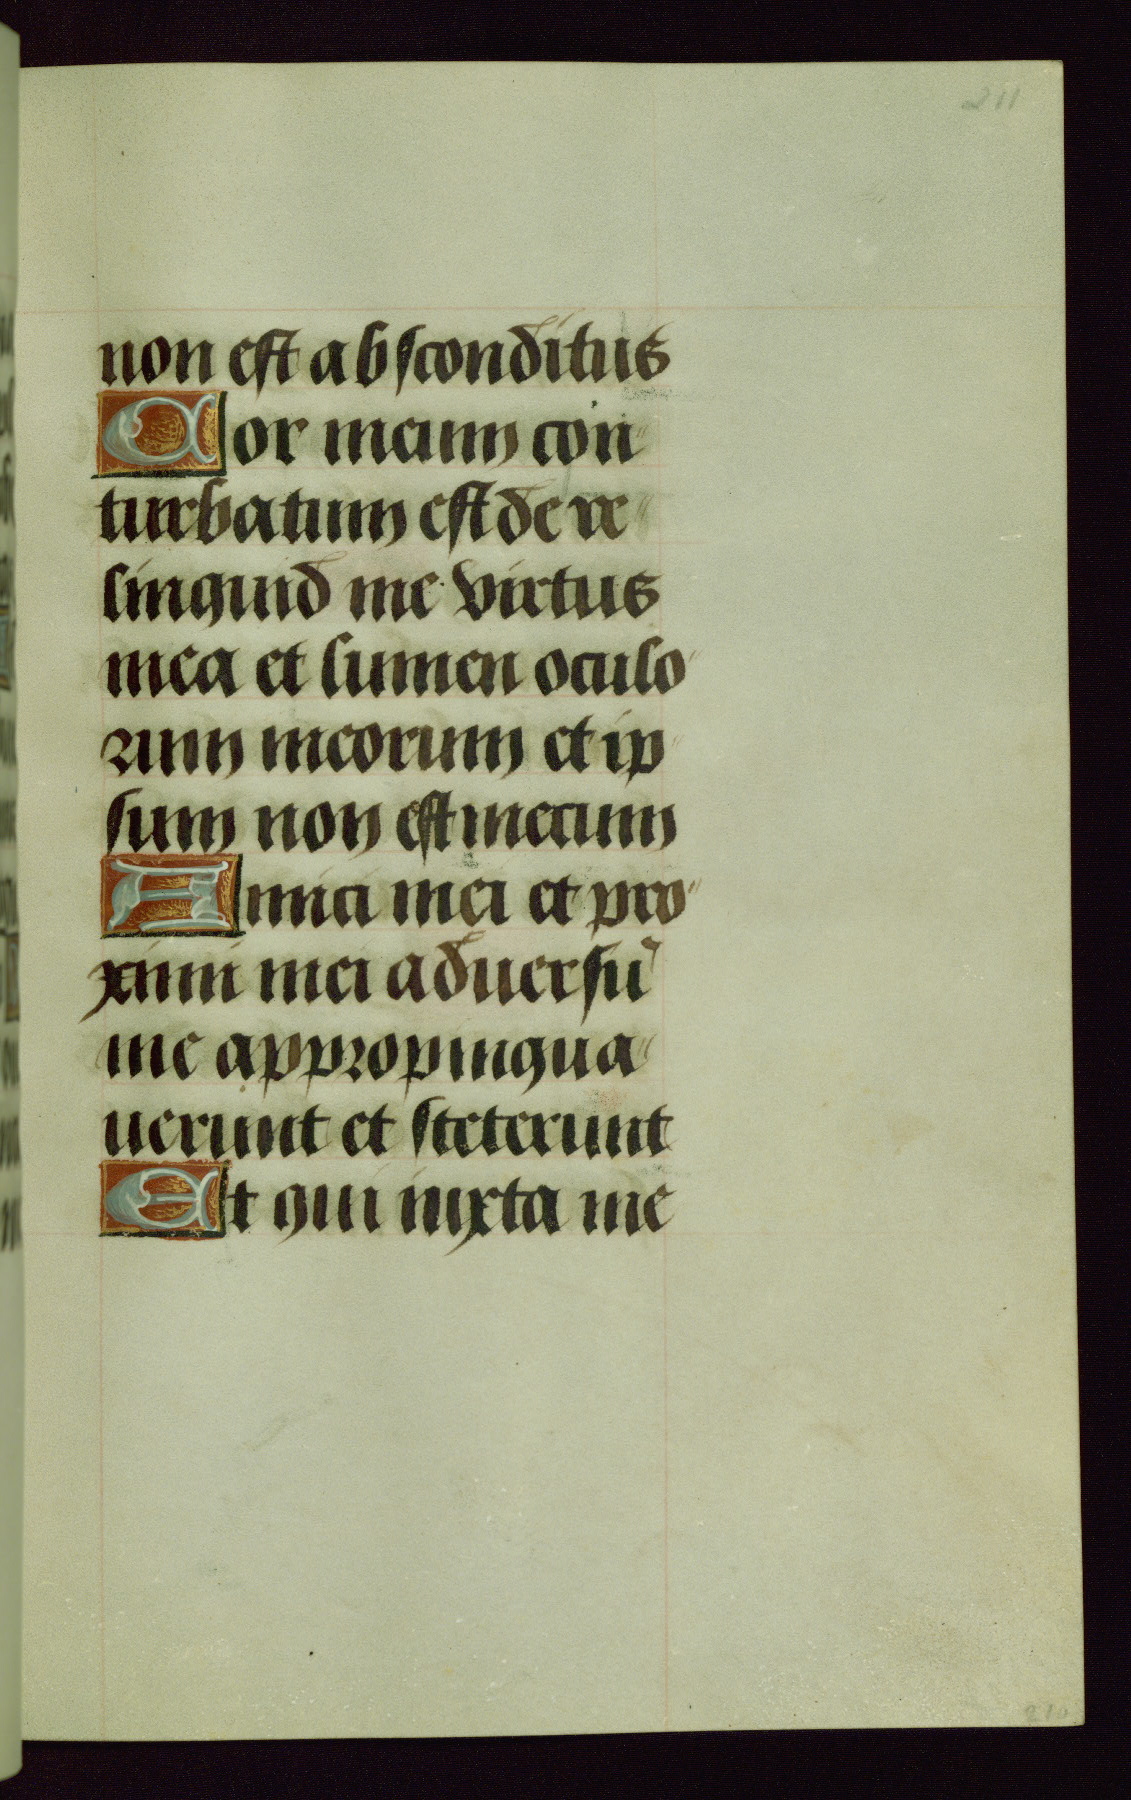 211
non est absconditus
Cor meum con
turbatum est de re
linquid me virtus
mea et lumen oculo
rum meorum et ip
sum non est mecum
Amici mei et pro
ximi mei aduersū
me appropinqua
uerunt et steterunt
Et qui iuxta me
210